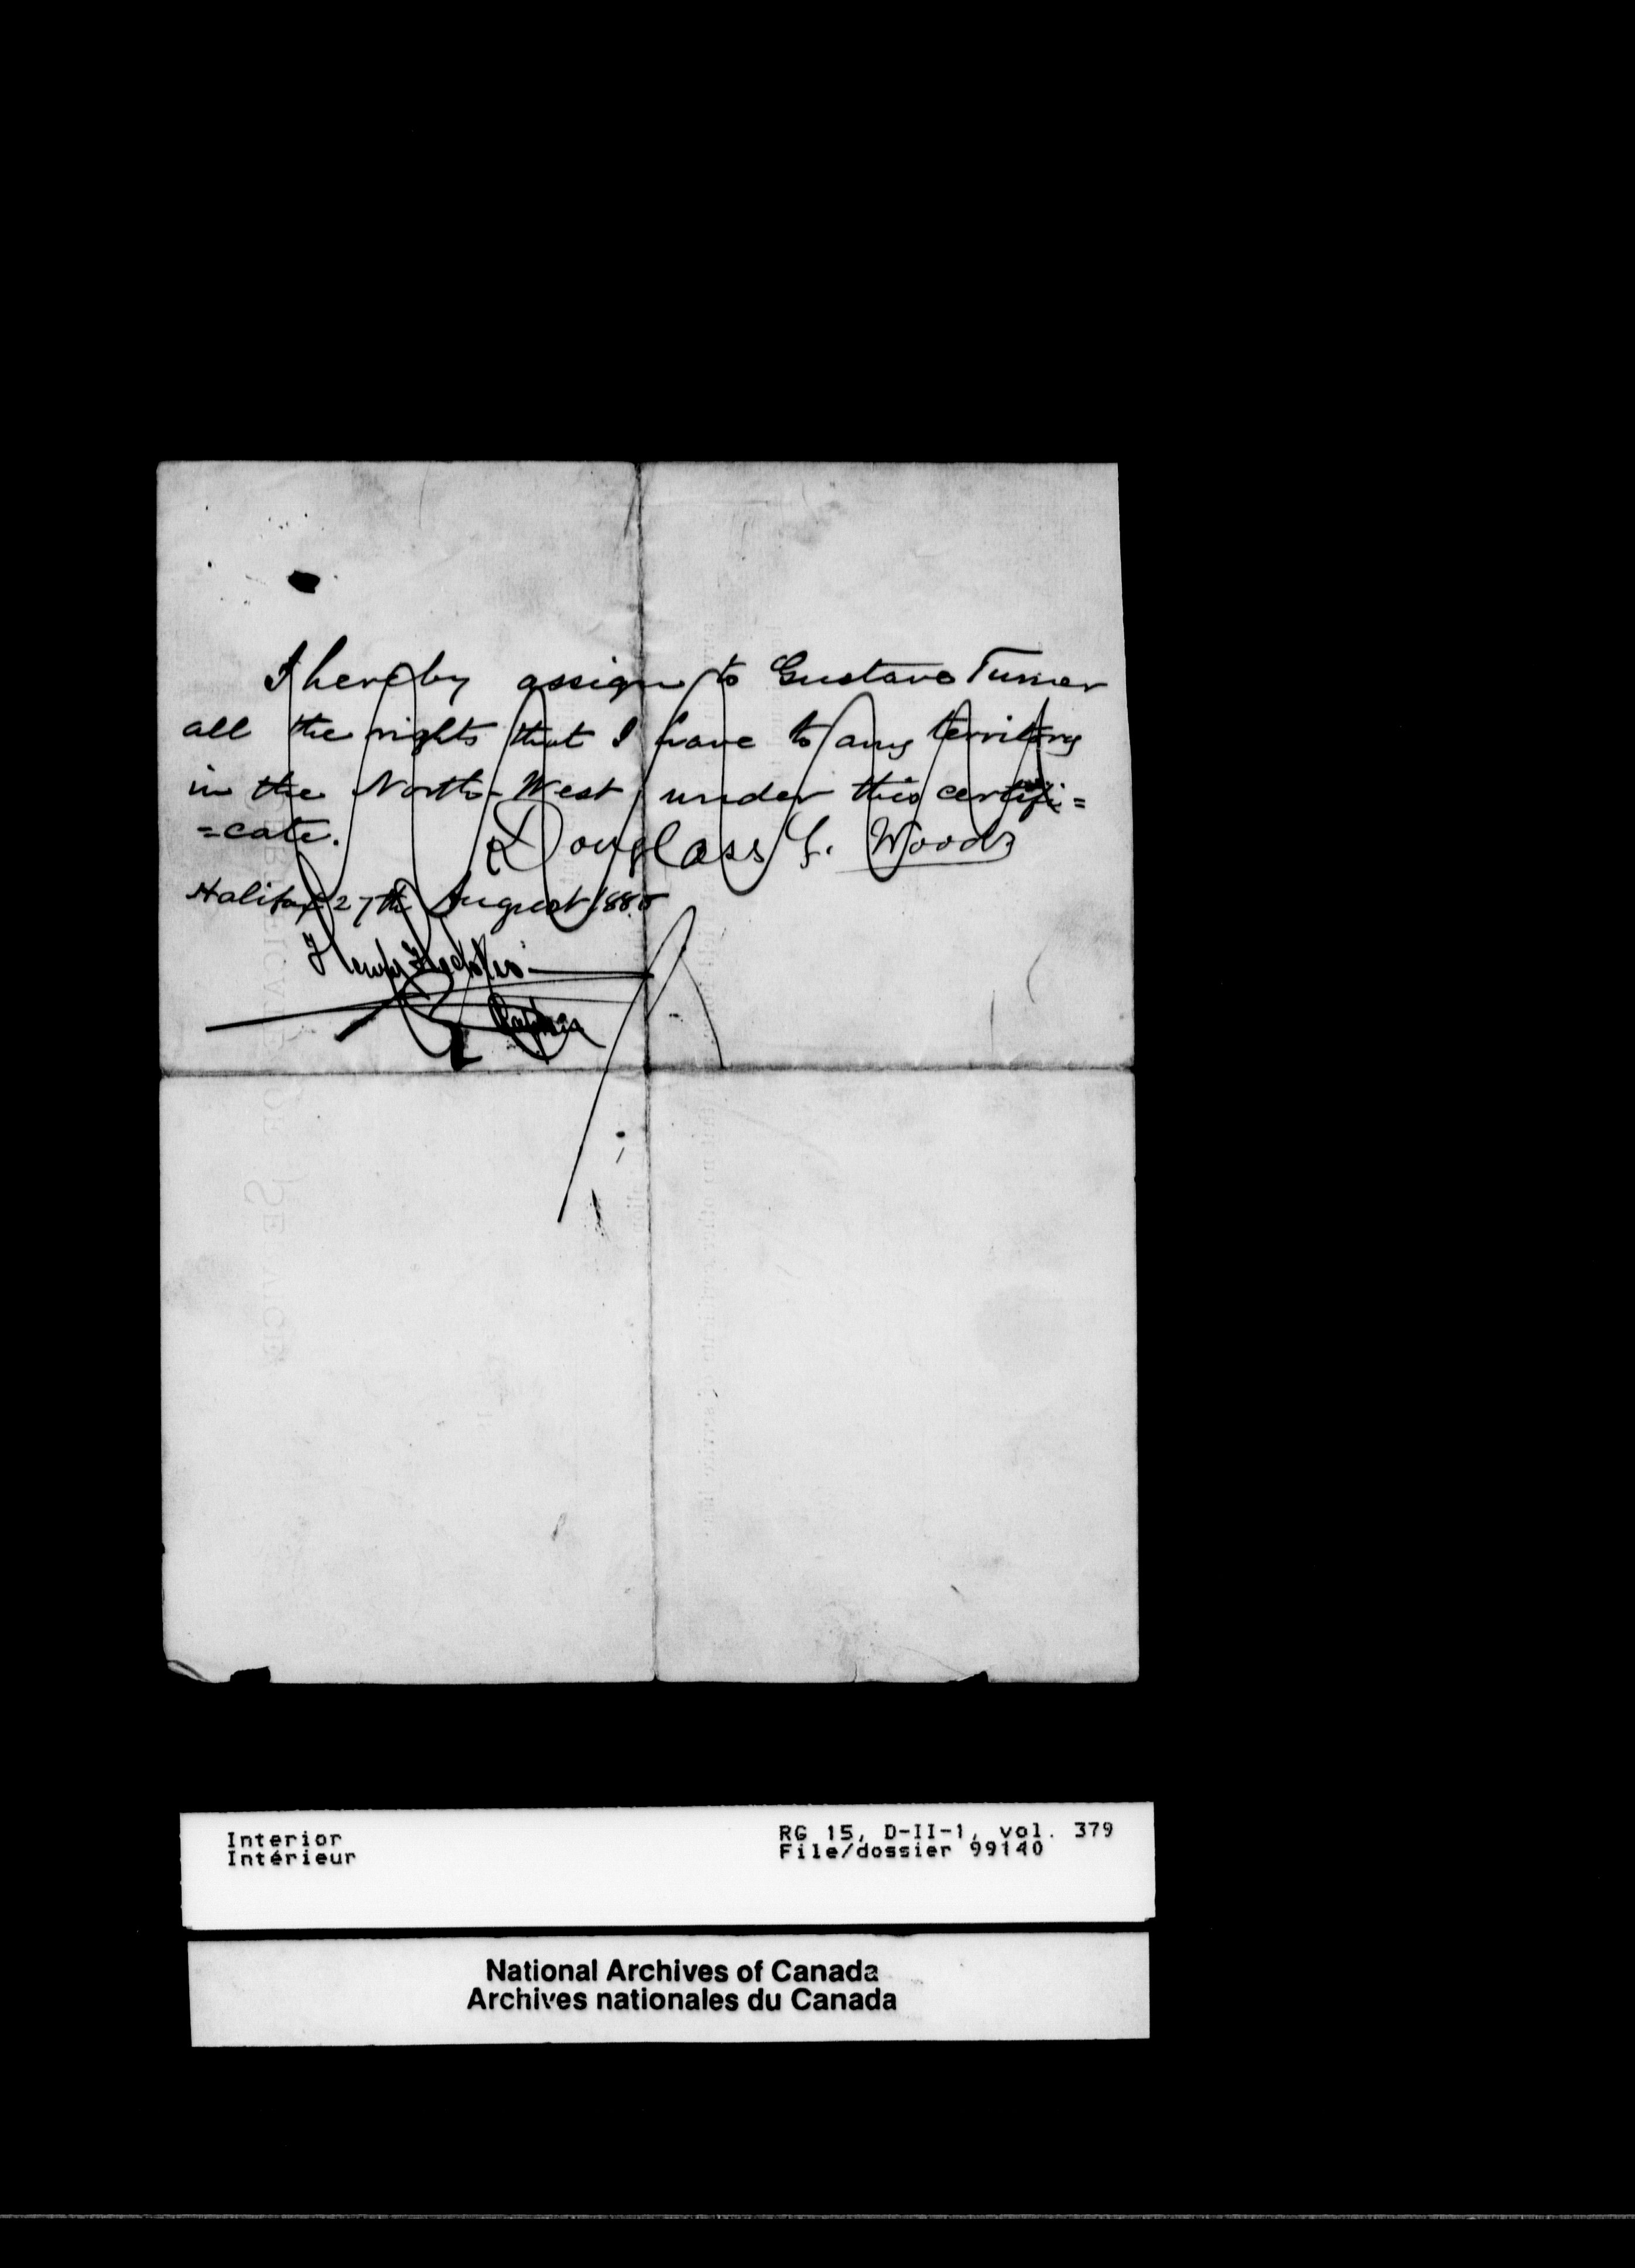 I hereby assign to Gustave Turner
all the rights that I have to any territory
in the North-West, under this certifi=
=cate. Douglass G. Woods
Halifax 27th August 1885
Henry
Captain
Interior
Intérieur
RG 15, D-II-1, vol. 379
File/dossier 99140
National Archives of Canada
Archives nationales du Canada